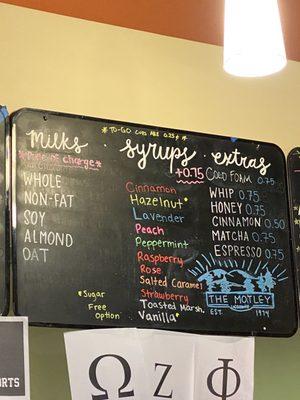 *TO-GO CUPS ARE 0.25¢*
Milks
*FREE OF CHARGE*
WHOLE
NON-FAT
SOY
ALMOND
OAT
Syrups
+0.75
Cinnamon
Hazelnut*
Lavender
Peach
Peppermint
Raspberry
Rose
Salted Caramel
Strawberry
Toasted Marsh.
Vanilla*
*Sugar
Free
Option
extras
COLD FOAM 0.75
WHIP 0.75
HONEY 0.75
CINNAMON 0.50
MATCHA 0.75
ESPRESSO 0.75
THE MOTLEY
EST. 1974
ORTS
Ω Ζ Φ